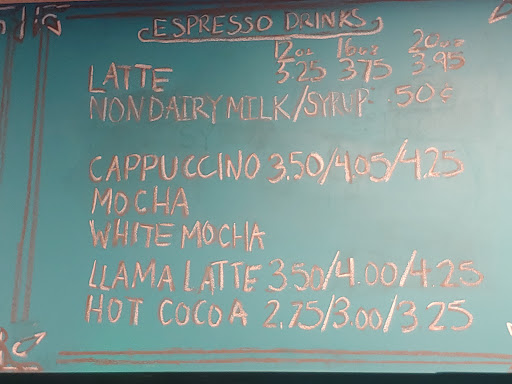 ESPRESSO DRINKS
12oz 16oz 20oz
LATTE 3.25 3.75 3.95
NONDAIRY MILK/SYRUP .50¢
CAPPUCCINO 3.50/4.05/4.25
MOCHA
WHITE MOCHA
LLAMA LATTE 3.50/4.00/4.25
HOT COCOA 2.75/3.00/3.25